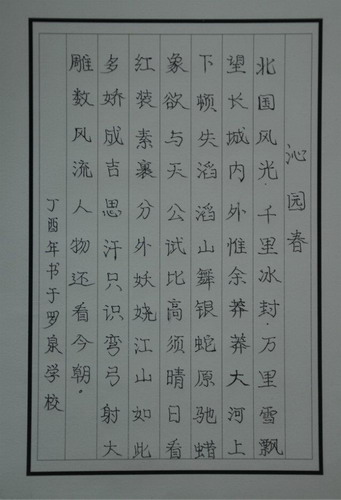 沁园春
北国风光.千里冰封.万里雪飘
望长城内外惟余莽莽大河上
下顿失滔滔山舞银蛇原驰蜡
象欲与天公试比高须晴日看
红装素裹分外妖娆江山如此
多娇成吉思汗只识弯弓射大
雕数风流人物还看今朝.
丁酉年书于罗泉学校